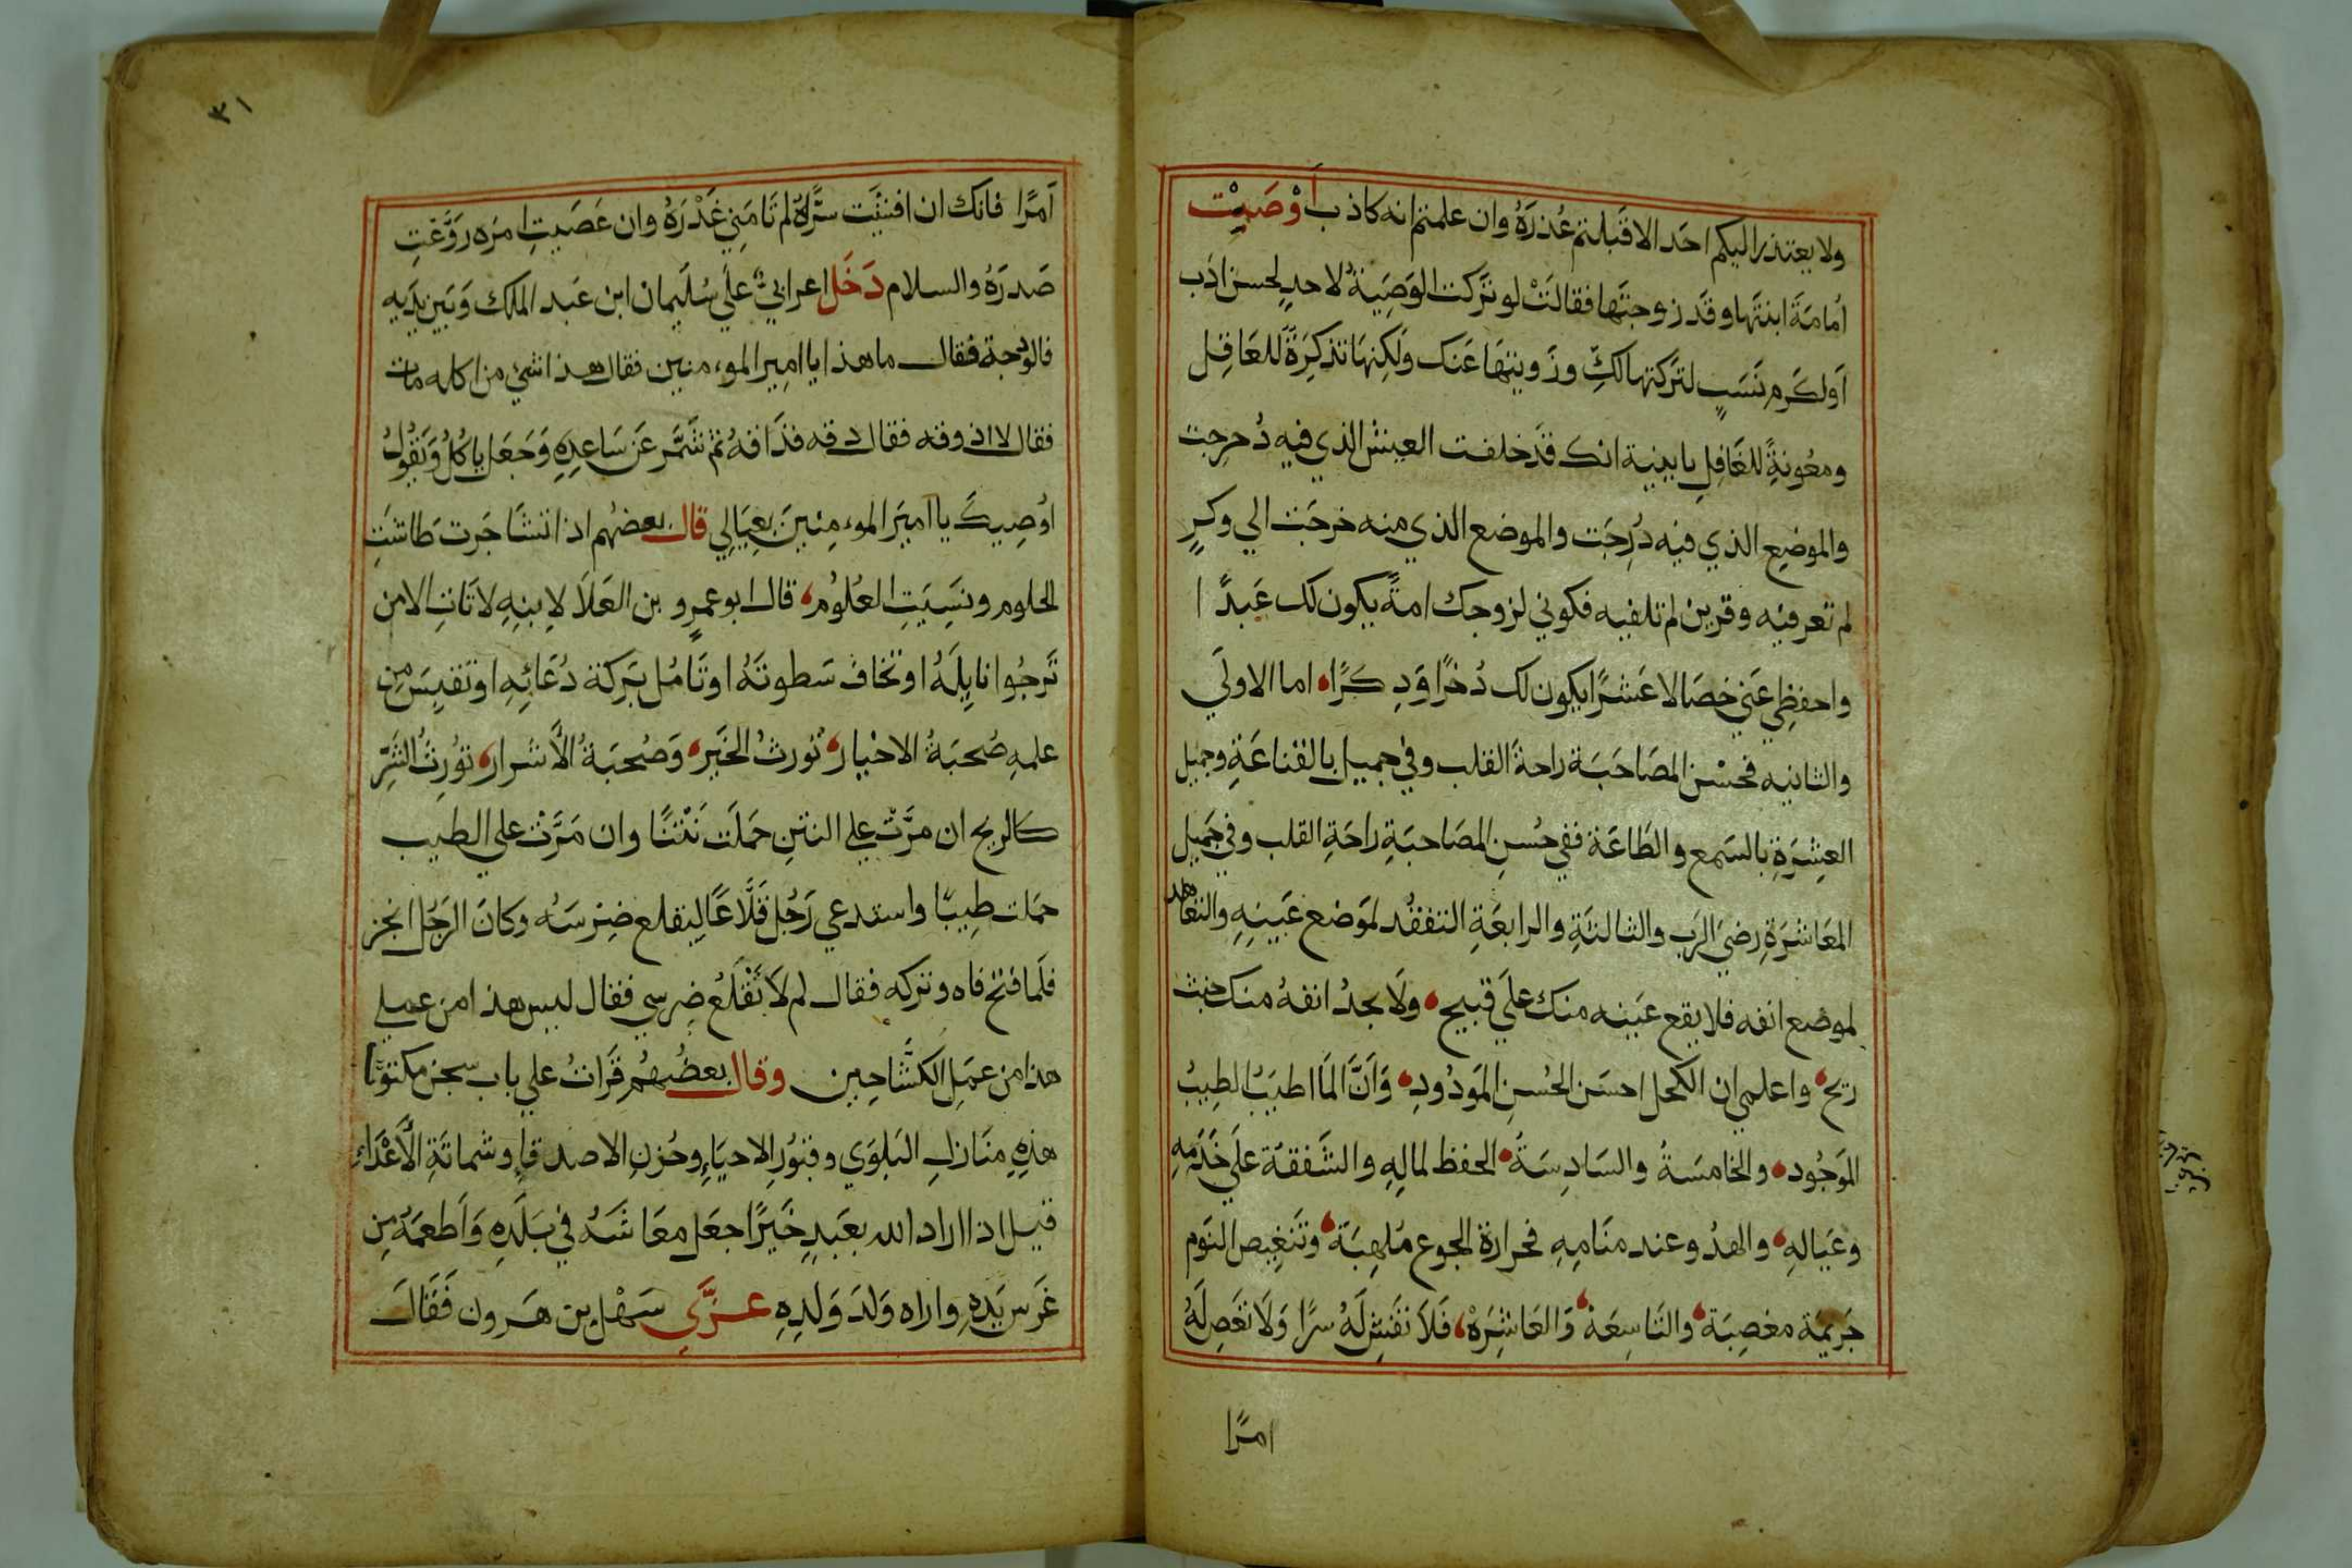 ولا يعتذر اليكم احَد الا قَبلتم عُذرَهُ وان علمتم انه كاذب اَوْصَيْت
اُمامَةَ ابنتَها وقَد زوجتَها فقالَتْ لو تَركت الوَصِيَةُ لاحدٍ لحسن ادَب
اَولكَرم نَسَبٍ لتركتها لكِ وزَويتهَا عَنك ولَكِنهَا تذكِرَةً للعَاقِل
ومعُونةً للغَافِلِ يا بنية انك قَد خلفت العيش الذي فيه دُحرجت
والموضِع الذي فيه دُرِجَت والموضع الذي منه خرجَت الي وكرٍ
لم تعرفيه وقرين لم تلفيه فكوني لزوجك امةً يكون لك عَبدًا
واحفظِي عَني خصَالا عَشرًا يكون لك ذُخرًا وَذِكرًا، اما الاولَي
والثانيه فحسْن المصَاحَبَة راحةَ القلب وفي جميل بالقناعَةِ وجميل
العِشِرَةِ بالسَمع والطَاعَة ففي حُسنِ المصَاحبَةِ راحَةِ القلب وفي جَميل
المعَاشَرَةِ رضيَ الرَب والثالثَةِ والرابعَةِ التفقُد لمَوضع عَينِهِ والتعَاهد
لموضع انفه فلا يقع عَينه منك علَي قبيح، ولَا يجدُ انفهُ منك خبث
ريح، واعلمي ان الكحل احسَن الحُسنِ المَودُودِ، وَانَّ المَا اطيَبُ الطِيبُ
المَوجُود، والخامسَةُ والسَادِسَةُ، الحفظ لمالِهِ والشَفقة علَي خَدَمِهِ
وعَيالهِ، والهدُو عند منَامِهِ فحرارة الجوع مُلهِبَة، وتَنغِيص النَوم
جَريمَة مغصِبَة، والتَاسِعَة، وَالعَاشِرَهْ، فَلَا تفَشِ لَهُ سرًا وَلَا تعَصِ لَهُ
امرًا
٣١
اَمرًا فانك ان افشيَت سرَّاهُ لم تَامَني غَدْرَهُ وان عَصَيتِ امرَه روَغتِ
صَدرَهُ والسلام دَخَل اعرابيٌ علَي سُليمان ابن عَبد الملك وَبَين يَديه
فالوُدجة فقال ما هذا يا امير المومنين فقال هذا شي من اكله مات
فقال لا اذوقه فقال دقه فذَاقهُ ثم شَمَّر عَن سَاعِدِهِ وَجَعَل ياكُلُ وَيَقُولُ
اوُصِيكَ يا اميَر المومِنينَ بعِيَالِي قال بعضهُم اذا تشَاجَرت طاشَتِ
الحلوم ونَسِيَتِ العُلُومُ، قال ابو عمرٍو بن العَلَا لِابنِهِ لَا تَاتِ الا من
تَرجُوا نايلَهُ او تخَافَ سَطوتَهُ او تَامُل بَركة دُعَائِهِ او تقتبِسَ مِن
علمهِ صُحبَةُ الاخْيار، تُورثُ الخَير، وَصُحبَةُ الأَشرار، تُورِثُ الشَرِّ
كالريح ان مَرَّت علي النتنِ حمَلَت نَتْنًا وان مَرَّتْ علي الطيب
حمَلت طِيبًا واستدعي رَجُل قَلَّاعًا ليقلع ضِرسَهُ وكانَ الرَجُل انجر
فلَما فتح فاه وتركه فقال لم لَا تَقْلَعُ ضِرسي فقال ليس هذا من عملي
هذا من عَمَلِ الكشَّاحِين وقال بعضُهُم قرَاتُ علي باب سجن مكتوبًا
هذِهِ منَازلِ البَلوَي وقبُورِ الاحيَاءِ وحُزنِ الاصدقاءِ وشماتَةِ الأَعْدَاء
قيل اذا اراد الله بعَبدٍ خَيرًا جعَل معَاشَهُ في بَلَدِهِ وَاَطعمَهُ مِن
غَرسِ يَدِهِ واراه وَلدَ وَلَدِهِ عزَّي سَهْل بن هَرون فَقَال